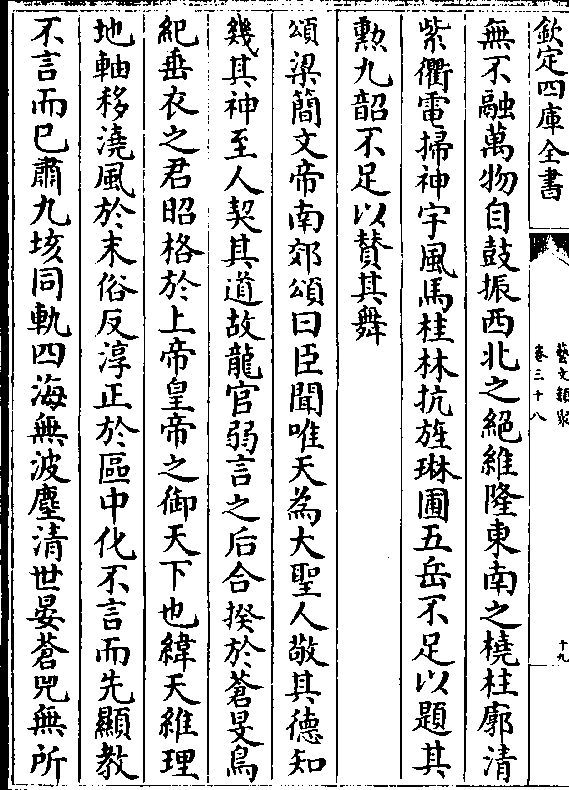 欽定四庫全書
藝文類聚
卷三十八
十九
無不融萬物自鼓振西北之絕維隆東南之橈柱廓清
紫衢電掃神宇風馬桂林抗旌琳圃五岳不足以題其
勲九韶不足以賛其舞
頌梁簡文帝南郊頌曰臣聞唯天為大聖人敬其德知
幾其神至人契其道故龍官弱言之后合揆於蒼旻鳥
紀垂衣之君昭格於上帝皇帝之御天下也緯天維理
地軸移澆風於末俗反淳正於區中化不言而先顯教
不言而已肅九垓同軌四海無波塵清世晏蒼兕無所